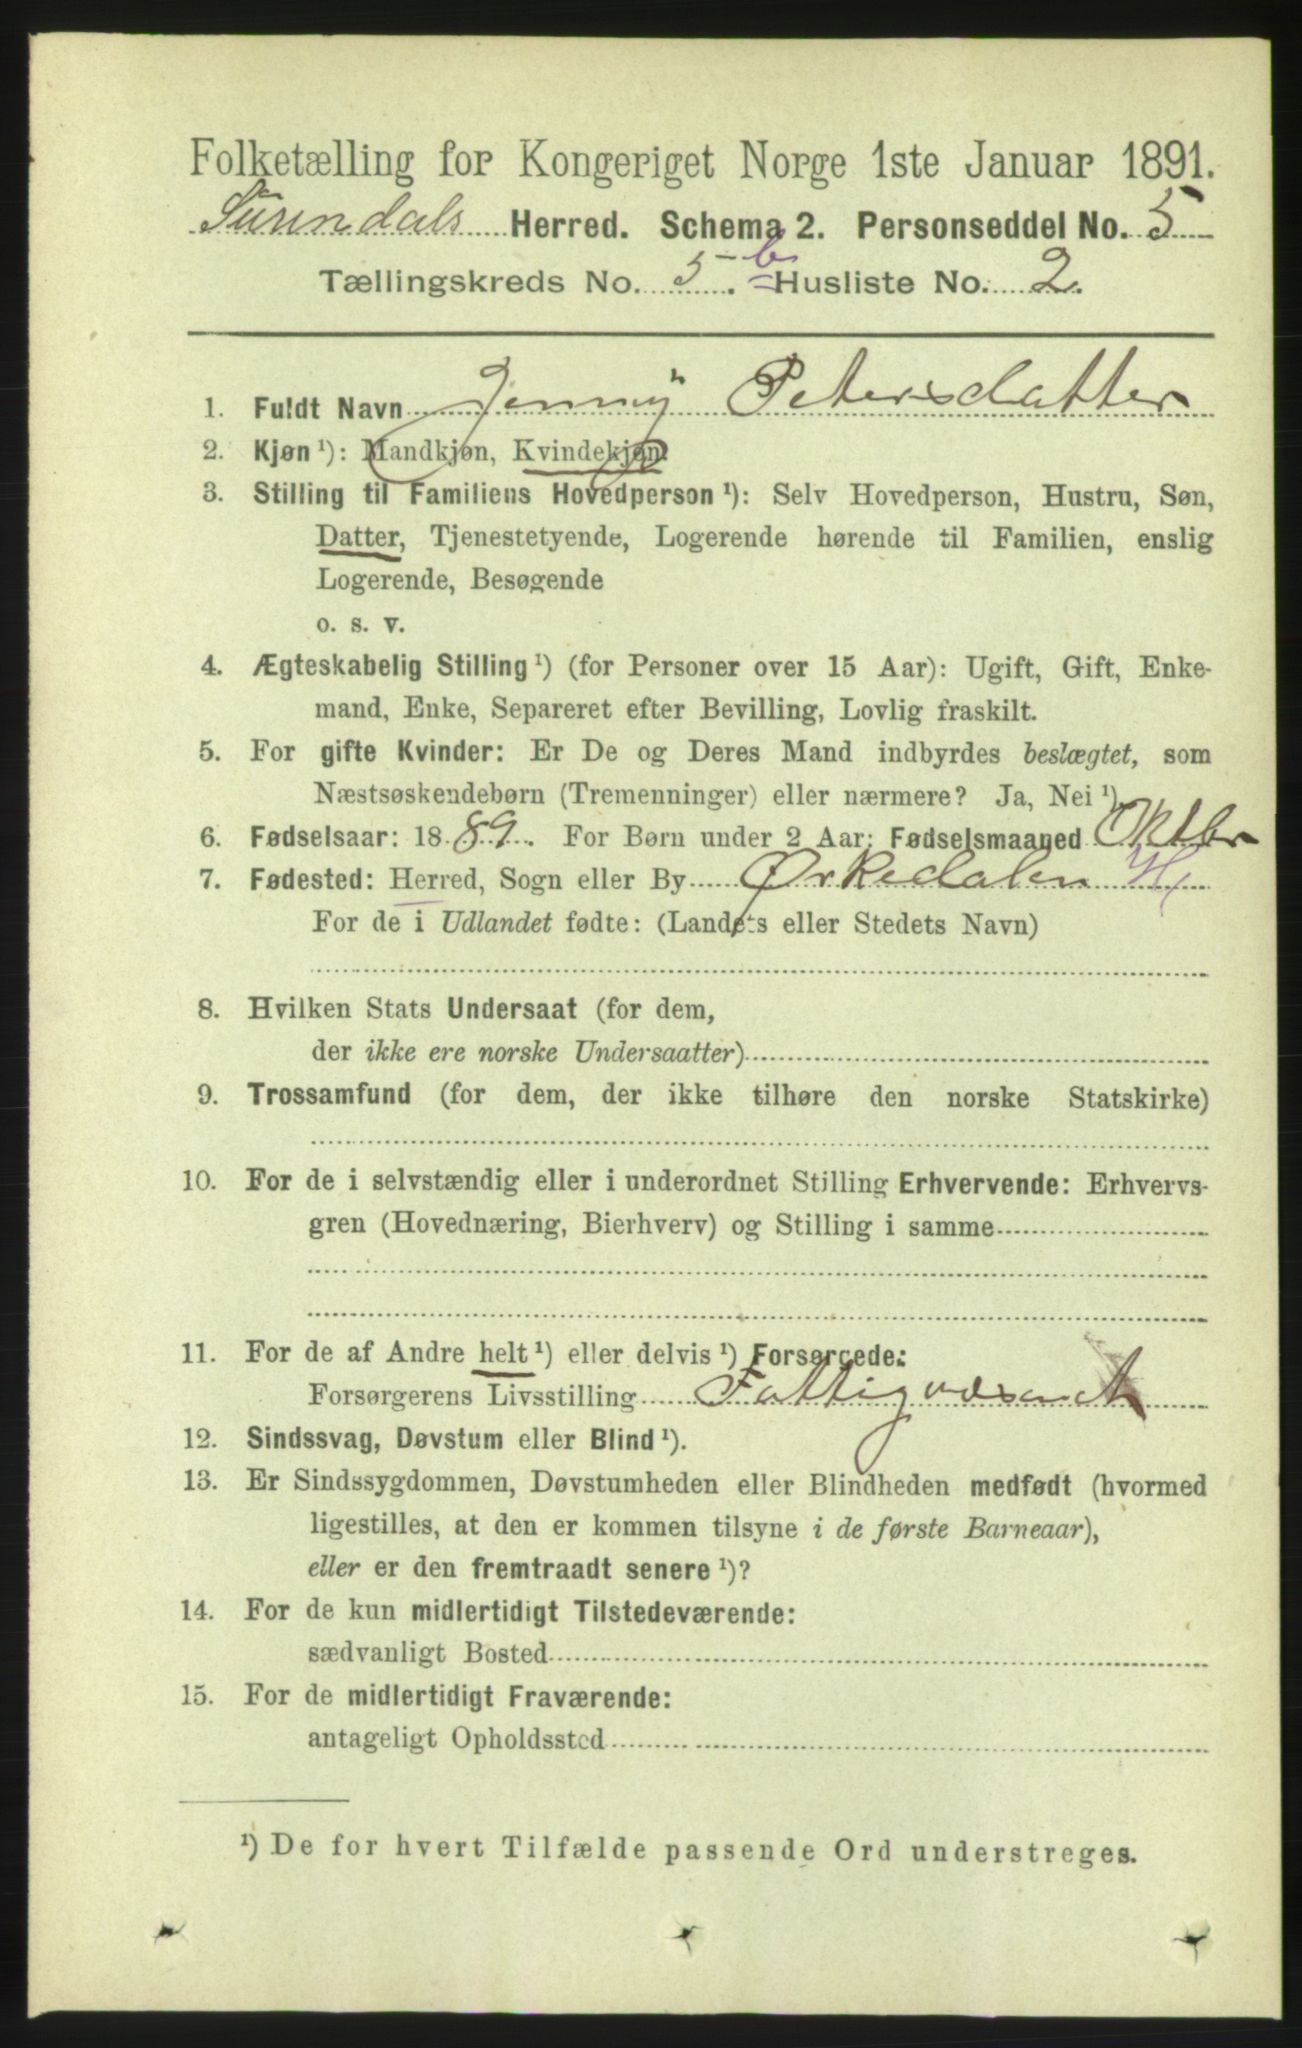 Folketælling for Kongeriget Norge 1ste Januar 1891.
Surendals Herred. Schema 2. Personseddel No. 5
Tællingskreds No. 5 b Husliste No. 2.
1. Fuldt Navn Jenny Petersdatter
2. Kjøn ¹): Mandkjøn, Kvindekjøn.
3. Stilling til Familiens Hovedperson ¹): Selv Hovedperson, Hustru, Søn,
Datter, Tjenestetyende, Logerende hørende til Familien, enslig
Logerende, Besøgende
o. s. v.
4. Ægteskabelig Stilling ¹) (for Personer over 15 Aar): Ugift, Gift, Enke-
mand, Enke, Separeret efter Bevilling, Lovlig fraskilt.
5. For gifte Kvinder: Er De og Deres Mand indbyrdes beslægtet, som
Næstsøskendebørn (Tremenninger) eller nærmere? Ja, Nei ¹)
6. Fødselsaar: 1889. For Børn under 2 Aar: Fødselsmaaned Oktbr
7. Fødested: Herred, Sogn eller By Ørkedalen H
For de i Udlandet fødte: (Landets eller Stedets Navn)
8. Hvilken Stats Undersaat (for dem,
der ikke ere norske Undersaatter)
9. Trossamfund (for dem, der ikke tilhøre den norske Statskirke)
10. For de i selvstændig eller i underordnet Stilling Erhvervende: Erhvervs-
gren (Hovednæring, Bierhverv) og Stilling i samme
11. For de af Andre helt ¹) eller delvis ¹) Forsørgede:
Forsørgerens Livsstilling
12. Sindssvag, Døvstum eller Blind ¹).
13. Er Sindssygdommen, Døvstumheden eller Blindheden medfødt (hvormed
ligestilles, at den er kommen tilsyne i de første Barneaar),
eller er den fremtraadt senere ¹)?
14. For de kun midlertidigt Tilstedeværende:
sædvanligt Bosted
15. For de midlertidigt Fraværende:
antageligt Opholdssted
¹) De for hvert Tilfælde passende Ord understreges.